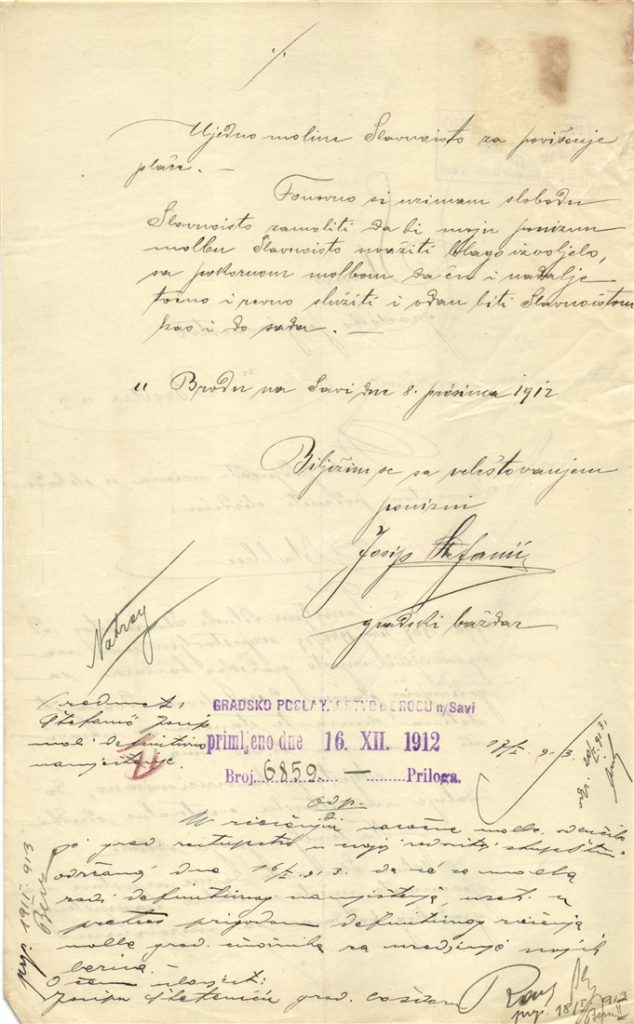 ·/·
Ujedno molim Slavnoisto za povišenje
plaće. —
Ponovno si uzimam slobodu
Slavnoisto zamoliti da bi moju poniznu
molbu Slavnoisto uvažiti blago izvoljelo,
sa pokornom molbom da ću i nadalje
točno i revno služiti i odan biti Slavnoistom
kao i do sada. —
U Brodu na Savi dne 8. prosinca 1912
Bilježim se sa veleštovanjem
ponizni
Josip Štefanić
gradski baždar
Natrag
Predmet:
Štefanić Josip
moli definitivno
namještenje.
GRADSKO POGLAVARSTVO u BRODU n/Savi
primljeno dne 16. XII. 1912
Broj 6859 — Priloga.
17/I. 913.
Odp.
U riešenju molbe, odlučilo
je grad. zastupstvo u svojoj skupštini
održanoj dne 16/I. 913. da će se molba
radi definitivnog namještenja, uzeti u
pretres prigodom definitivnog riešenja
molbe grad. činovnika za uredjenje njihovih
berivā.
Josipu grad.
prp. 19/I 913
prp. 18/I 913